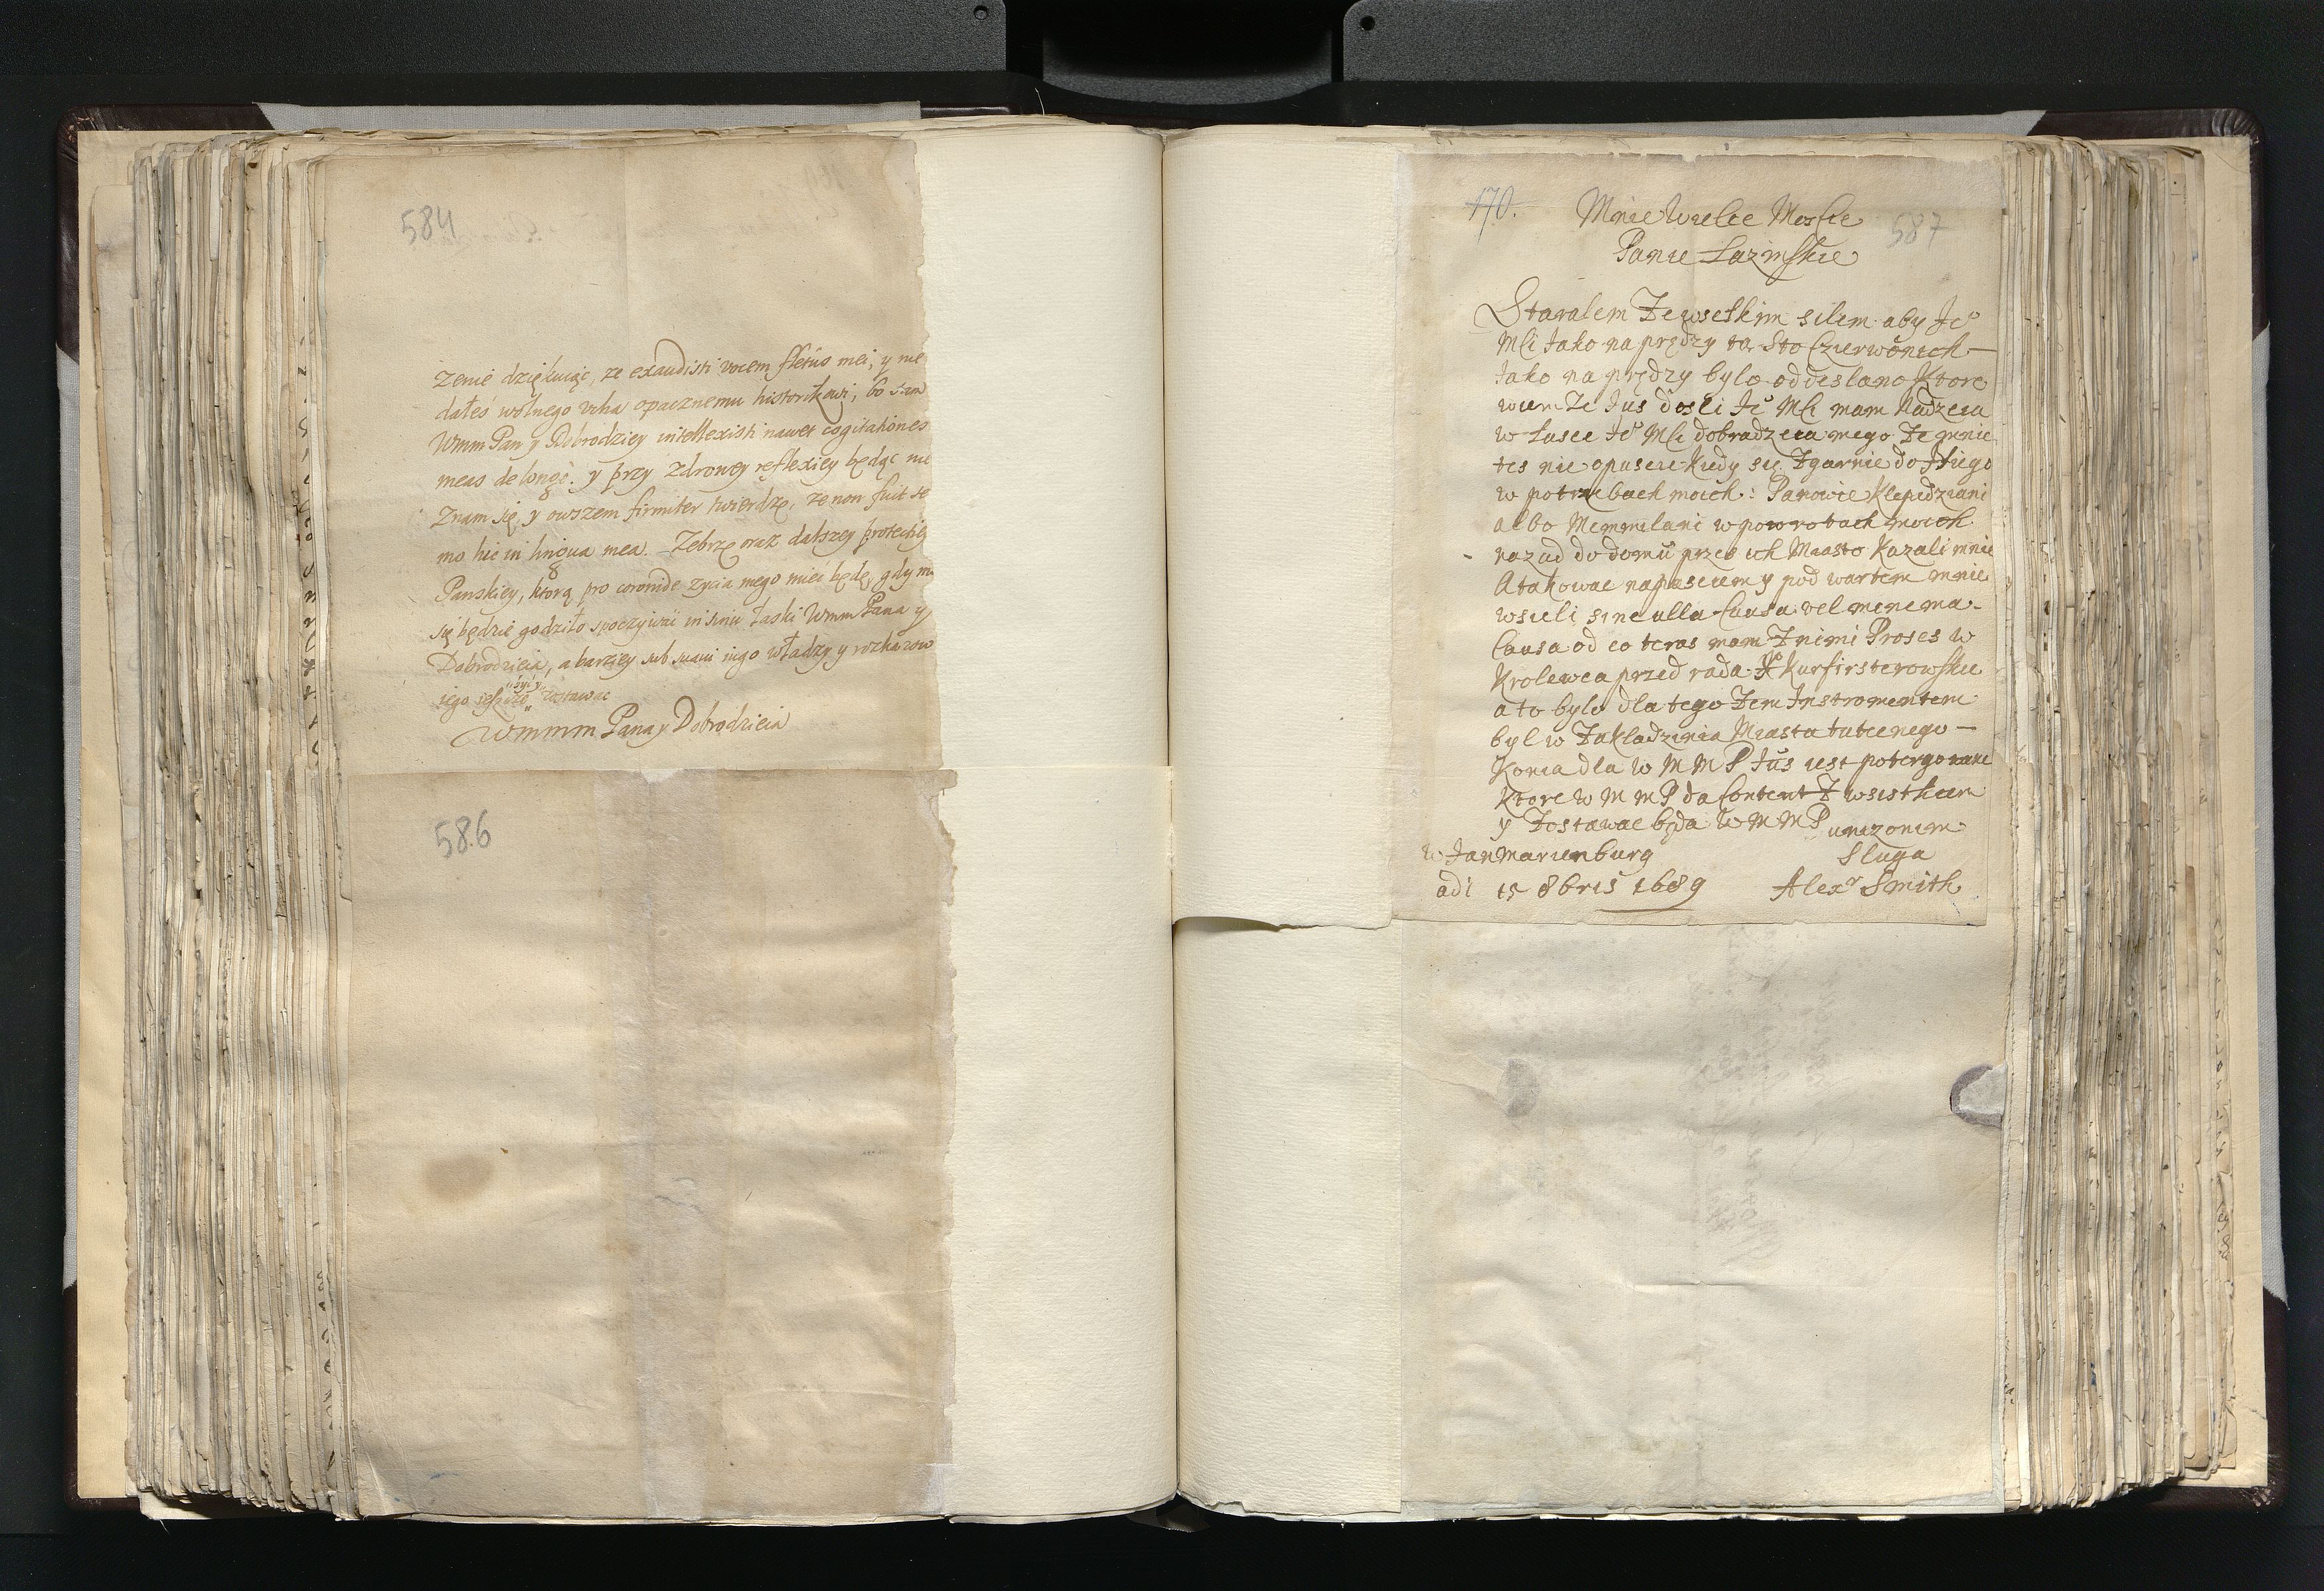 584
żenie dziękuiąc, ze exaudisti vocem fletus mei, y nie
dałeś wolnego ucha opacznemu historikowi, bo sam
Wmm Pan y Dobrodziey intellexisti nawet cogitationes
meas de longè. y przy zdrowey reflexiey będąc nie
znam się, y owszem firmiter twierdzę, ze non fuit ser
mo hic in lingua mea. Zebrzę oraz dalszey protectiey
Panskiey, ktorą pro coronide zycia mego mieć będę, gdy mi
się będzie godziło spoczywać in sinu Łaski Wmm Pana y
Dobrodzieia, a barziey sub suavi iugo władzy y rozkazow
iego zostawac
Wmmm Pana y Dobrodzieia
586
170.
587
Mnie Wielce Moscie
Panie Łazinskie
Staralem Ze wsetkim silem aby Jeº
Mci Jako na prędzy ta Sto Czerwonich
Jako na prędzy bylo oddeslano Ktore
wiem Ze Jus dosli Jeº Mci mam Nadzeia
w Lasce Jeº Mci dobradzeia mego Ze mnie
tes nie opuscie kiedy się Zgarnie do Niego
w potrzebach moich: Panowie Klepidziani
albo Memmelani w powrotach moich
nazad do domu przes ich Miasto Kazali mnie
Atakowac napasciem y pod wartem mnie
wsieli sine ulla Causa vel minema
Causa od co teras mam Z nimi Proses w
Krolewca przed rada Kurfirsterowskie
a to bylo dla tego Zem Instromentem
byl w Zakladzinia Miasta tutecnego
Konia dla W M M P Jus iest potargowane
Ktore W M M P da Content Z wsistkiem
y Zostawac będa W M M P unizonim
w Janmarienburg
Sluga
adi 15 8bris 1689
Alexr Smith